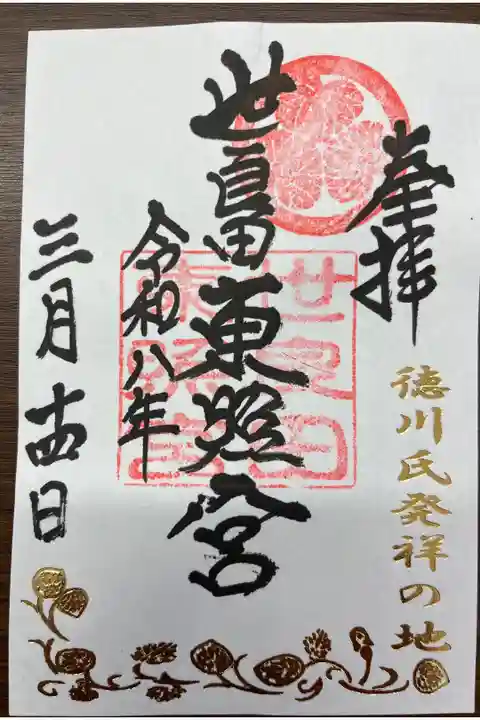 奉拝
徳川氏発祥の地
世良田東照宮
世良田
東照宮
令和八年
三月十四日